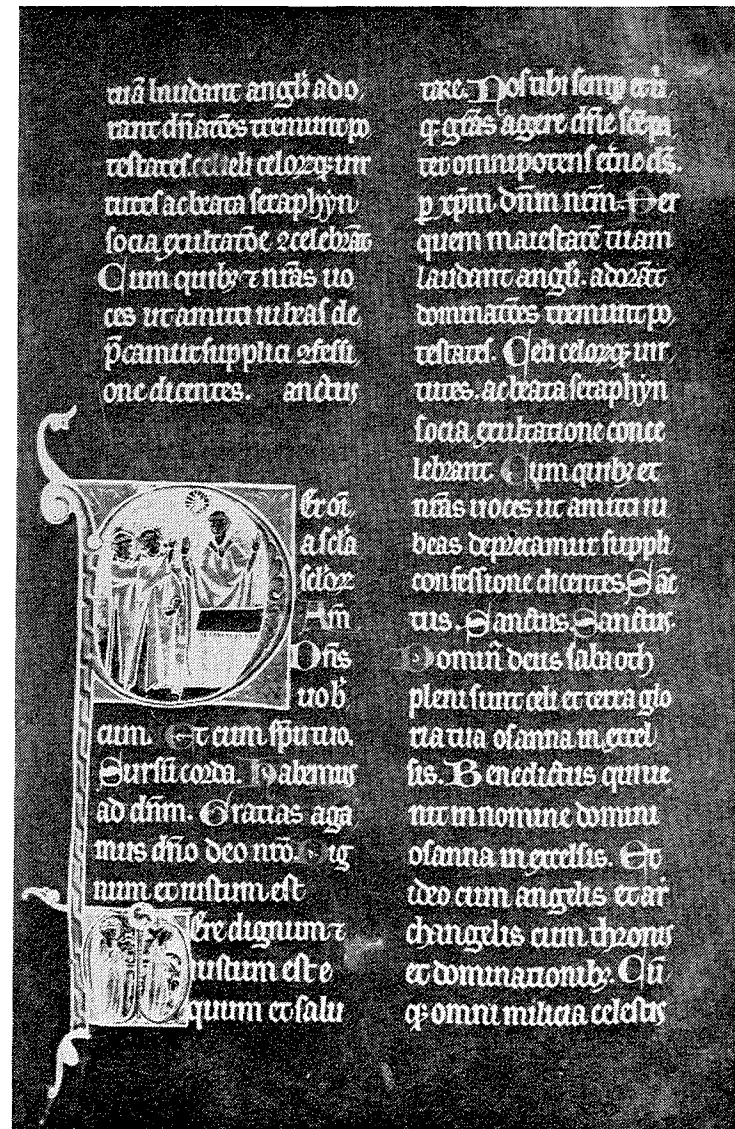 tuā laudant angłi ado
rant dn̄ac̄es tremunt po
testates. celi celorꝫ uir
tutes ac beata seraphyn
socia exultac̄oe ꝯcelebrāt
Cum quibꝫ ⁊ nr̄as uo
ces ut amitti iubeas de
p̄camur supplici ꝯfessi
one dicentes. anctus
Per oī
a scła
scłoꝝ
Am̄
Dn̄s
uob̄
cum. Et cum sp̄u tuo.
Sursū corda. Habemus
ad dn̄m. Gratias aga
mus dn̄o deo nr̄o. Dig
num et iustum est
Uere dignum ⁊
iustum est e
quum et salu
tare. Nos tibi semp et ui
qꝫ gr̄as agere dn̄e sc̄e pa
ter omnipotens et̄ne ds̄.
p xp̄m dn̄m nr̄m. Per
quem maiestatē tuam
laudant angłi. adorāt
dominac̄es tremunt po
testates. Celi celorꝫ uir
tutes. ac beata seraphyn
socia exultatione conce
lebrant. Cum quibꝫ et
nr̄as uoces ut amitti iu
beas deprecamur suppli
confessione dicentes. Sāc
tus. Sanctus. Sanctus.
Domin̄ deus sabaoth
pleni sunt celi et terra glo
ria tua osanna in excel
sis. Benedictus qui ue
nit in nomine domini
osanna in excelsis. Et
ideo cum angelis et ar
changelis cum thronis
et dominationibꝫ. Cū
qꝫ omni milicia celestis